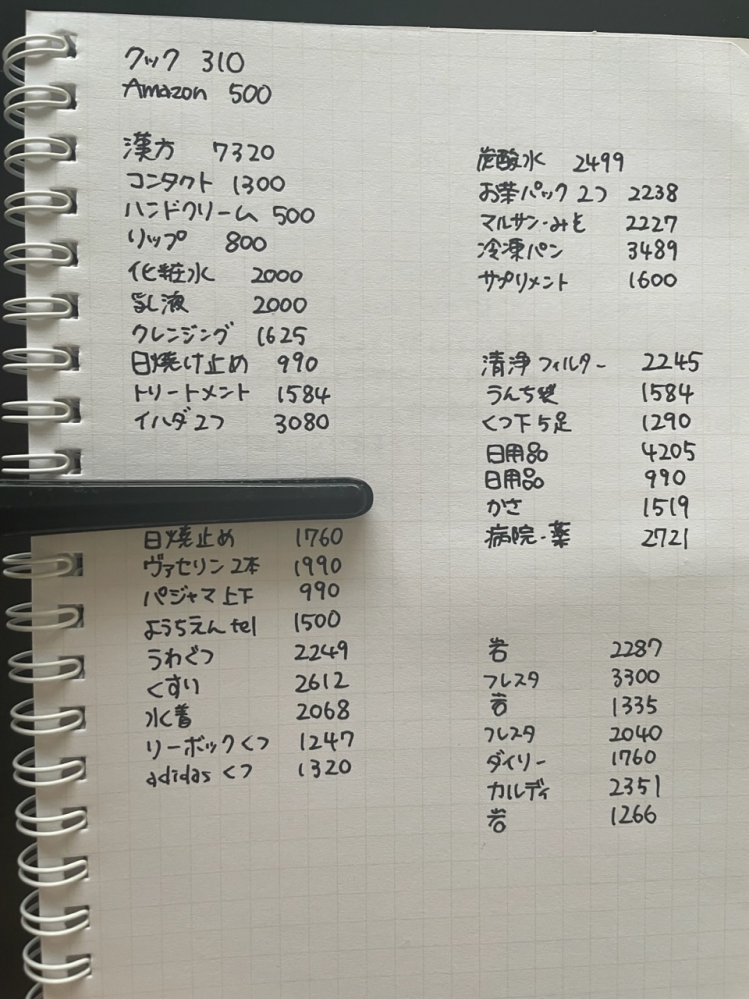 クック 310
Amazon 500
漢方 7320
コンタクト 1300
ハンドクリーム 500
リップ 800
化粧水 2000
乳液 2000
クレンジング 1625
日焼け止め 990
トリートメント 1584
イハダ2つ 3080
日焼止め 1760
ヴァセリン2本 1990
パジャマ上下 990
ようちえんtel 1500
うわぐつ 2249
くすい 2612
水着 2068
リーボックくつ 1247
adidasくつ 1320
炭酸水 2499
お茶パック2つ 2238
マルサン-みそ 2227
冷凍パン 3489
サプリメント 1600
清浄フィルター 2245
うんち袋 1584
くつ下5足 1290
日用品 4205
日用品 990
かさ 1519
病院-薬 2721
岩 2287
フレスタ 3300
岩 1335
フレスタ 2040
ダイリー 1760
カルディ 2351
岩 1266